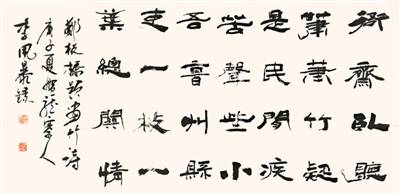 衙齋臥聽
蕭蕭竹疑
是民間疾
苦聲些小
吾曹州縣
吏一枝一
葉總關情
鄭板橋題畫竹詩
庚子夏人
李鳳